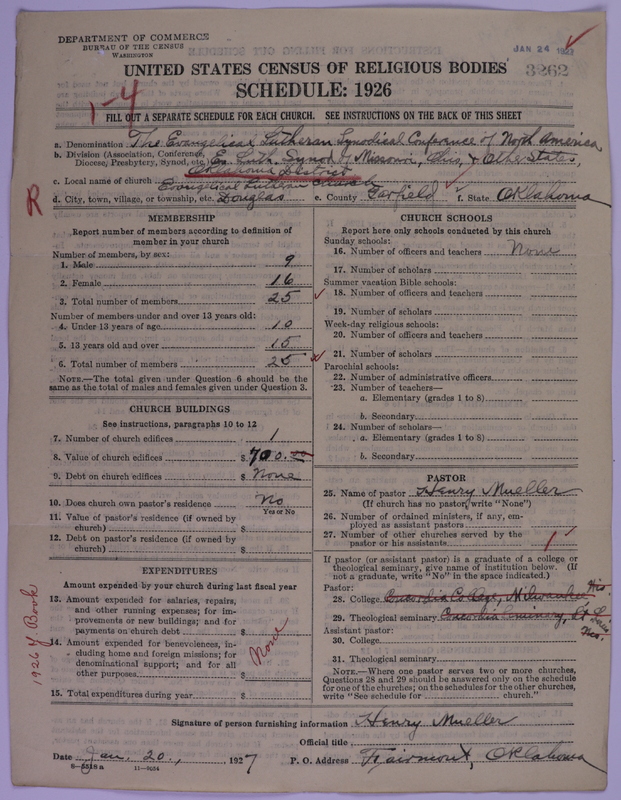 DEPARTMENT OF COMMERCE
BUREAU OF THE CENSUS
WASHINGTON
JAN 24 1927
3262
UNITED STATES CENSUS OF RELIGIOUS BODIES
SCHEDULE: 1926
1-4
FILL OUT A SEPARATE SCHEDULE FOR EACH CHURCH. SEE INSTRUCTIONS ON THE BACK OF THIS SHEET
a. Denomination The Evangelical Lutheran Synodical Conference of North America
b. Division (Association, Conference, Diocese, Presbytery, Synod, etc.) Ev. Luth. Synod of Missouri, Ohio, & Other States,
Oklahoma District
c. Local name of church Evangelical Lutheran Church
R
d. City, town, village, or township, etc. Douglas e. County Garfield f. State Oklahoma
MEMBERSHIP
Report number of members according to definition of member in your church
Number of members, by sex:
1. Male 9
2. Female 16
3. Total number of members 25
Number of members under and over 13 years old:
4. Under 13 years of age 10
5. 13 years old and over 15
6. Total number of members 25
NOTE.—The total given under Question 6 should be the same as the total of males and females given under Question 3.
CHURCH BUILDINGS
See instructions, paragraphs 10 to 12
7. Number of church edifices 1
8. Value of church edifices $ 700.00
9. Debt on church edifices $ None
10. Does church own pastor's residence No
Yes or No
11. Value of pastor's residence (if owned by church) $
12. Debt on pastor's residence (if owned by church) $
EXPENDITURES
Amount expended by your church during last fiscal year
13. Amount expended for salaries, repairs, and other running expenses; for improvements or new buildings; and for payments on church debt $
14. Amount expended for benevolences, including home and foreign missions; for denominational support; and for all other purposes $
None
15. Total expenditures during year $
1926 Y Book
CHURCH SCHOOLS
Report here only schools conducted by this church
Sunday schools:
16. Number of officers and teachers None
17. Number of scholars
Summer vacation Bible schools:
18. Number of officers and teachers
19. Number of scholars
Week-day religious schools:
20. Number of officers and teachers
21. Number of scholars
Parochial schools:
22. Number of administrative officers
23. Number of teachers—
a. Elementary (grades 1 to 8)
b. Secondary
24. Number of scholars—
a. Elementary (grades 1 to 8)
b. Secondary
PASTOR
25. Name of pastor Henry Mueller
(If church has no pastor, write "None")
26. Number of ordained ministers, if any, employed as assistant pastors
27. Number of other churches served by the pastor or his assistants 1
If pastor (or assistant pastor) is a graduate of a college or theological seminary, give name of institution below. (If not a graduate, write "No" in the space indicated.)
Pastor:
28. College Concordia College, Milwaukee Wis.
29. Theological seminary Concordia Seminary, St Louis Mo.
Assistant pastor:
30. College
31. Theological seminary
NOTE.—Where one pastor serves two or more churches, Questions 28 and 29 should be answered only on the schedule for one of the churches; on the schedules for the other churches, write "See schedule for church."
Signature of person furnishing information Henry Mueller
Official title
Date Jan. 20., 1927 P. O. Address Fairmont, Oklahoma
8-5518a 11-9054